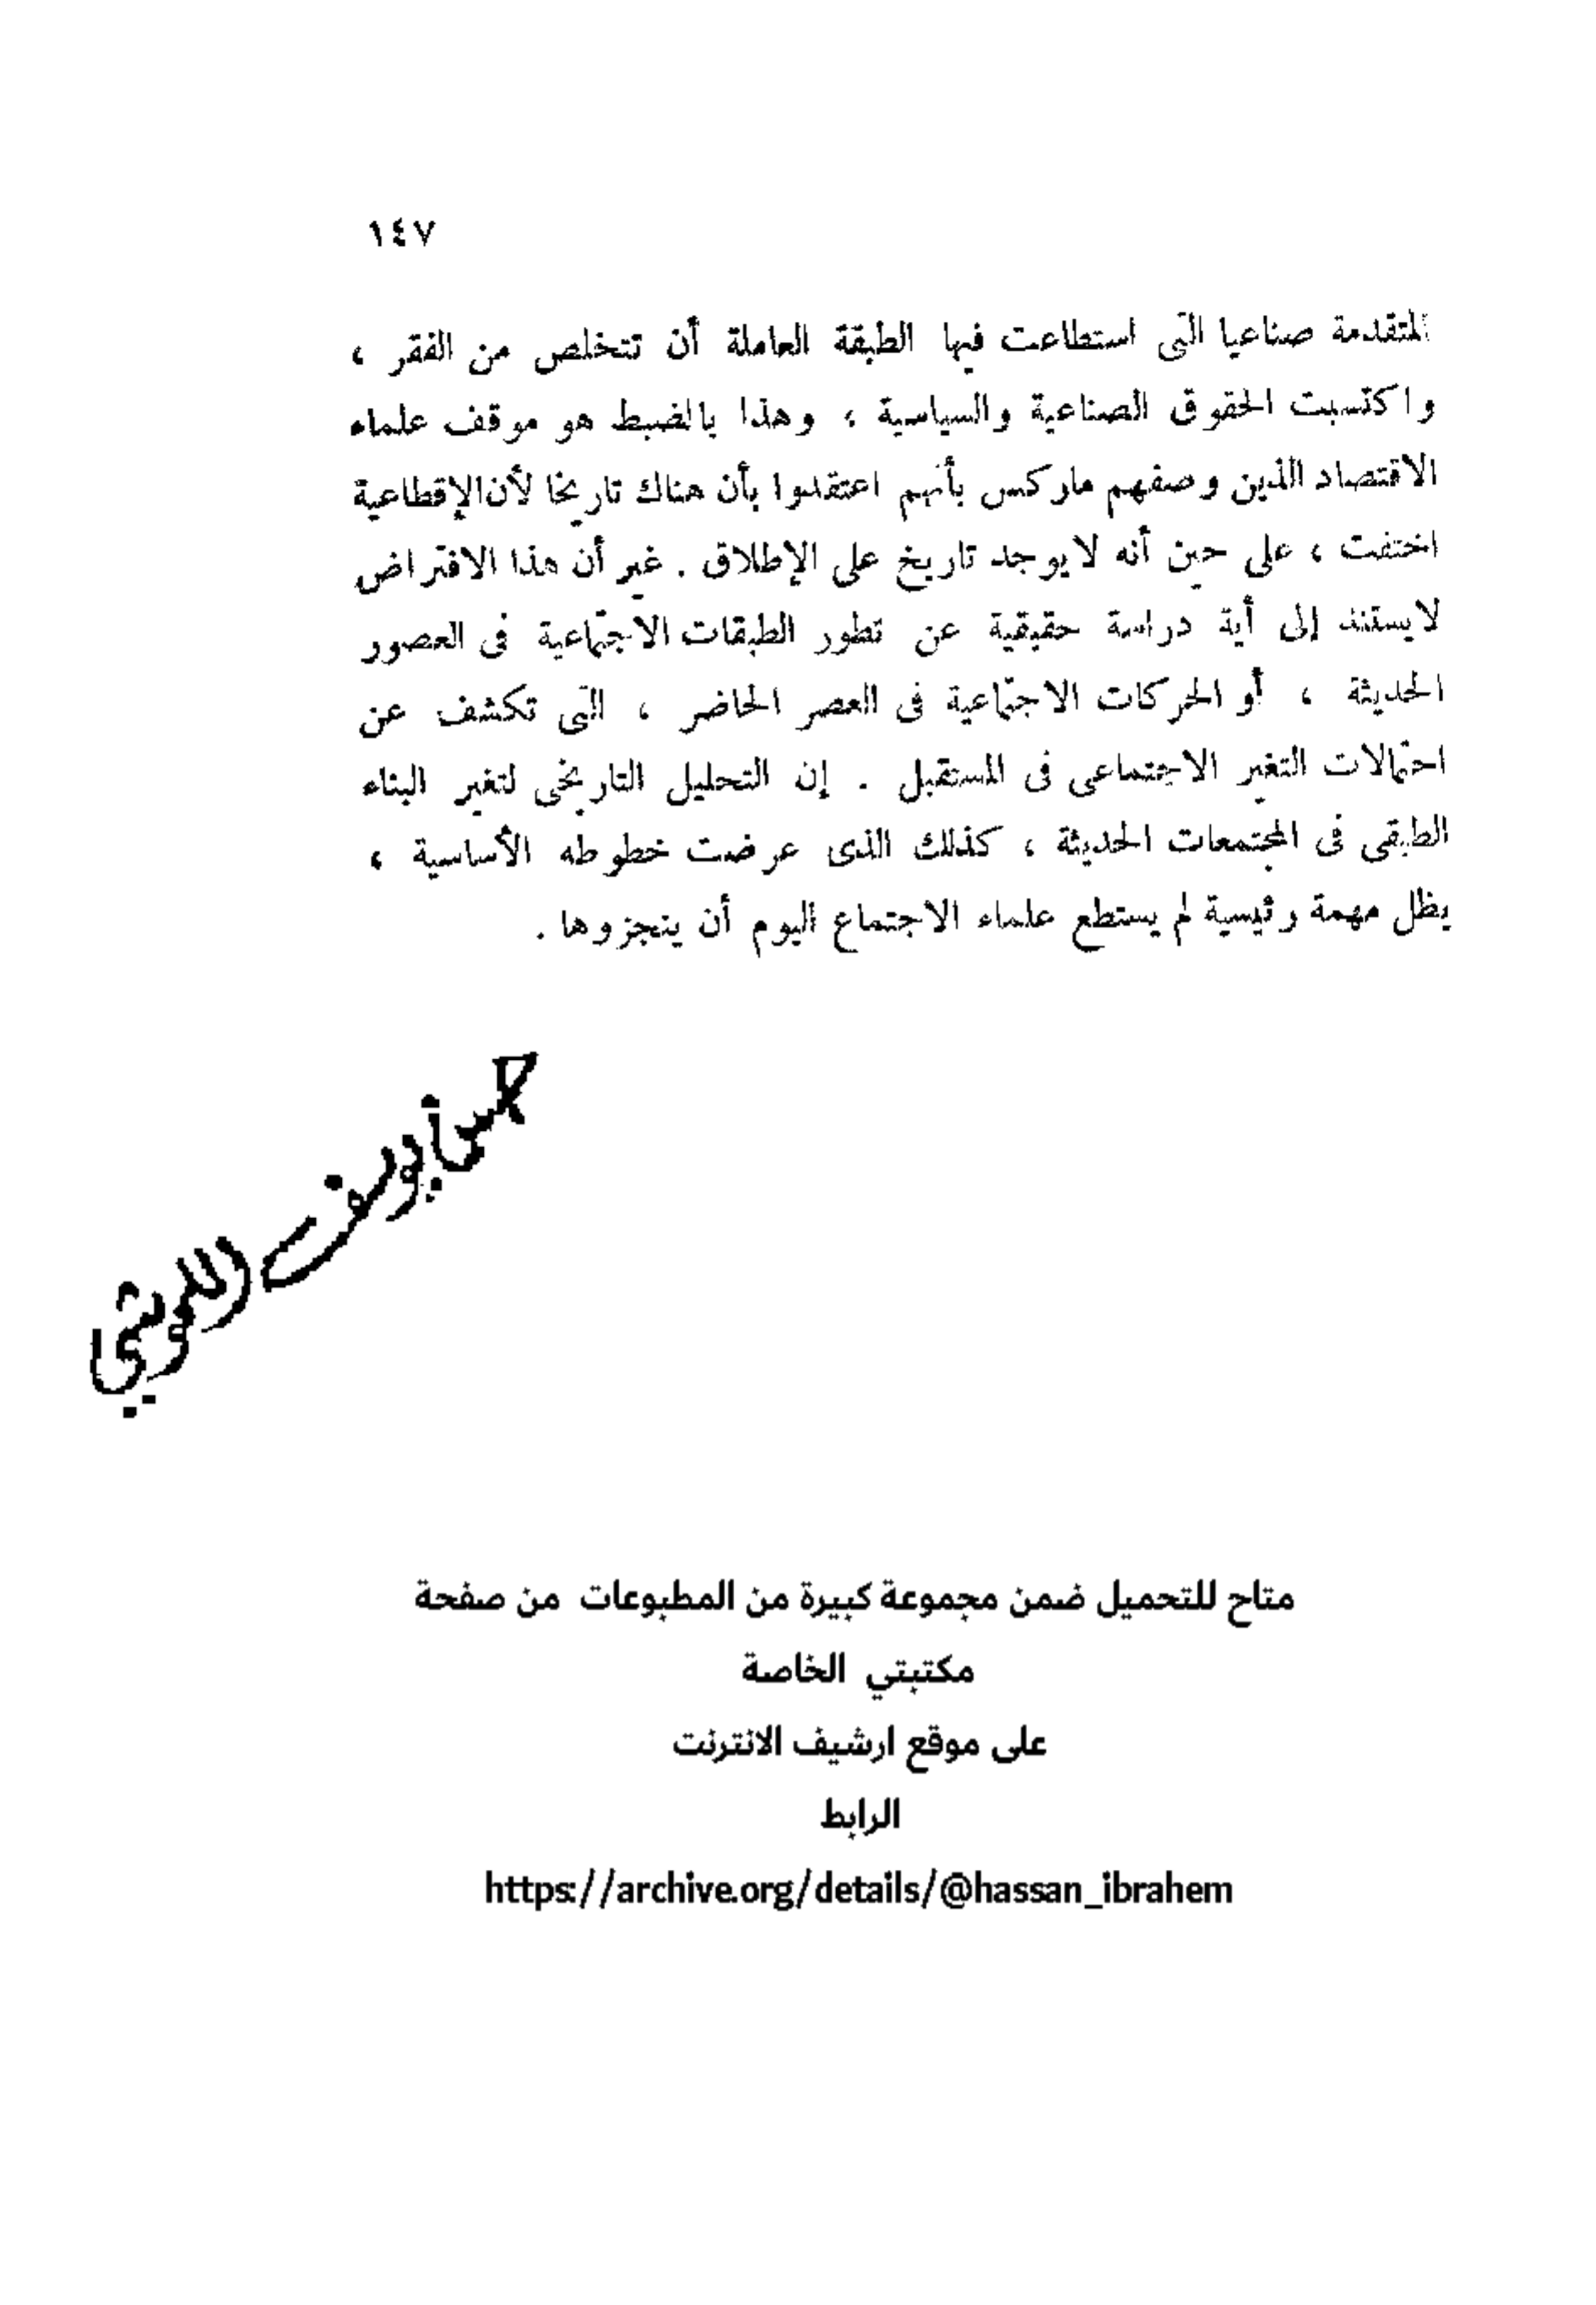 ١٤٧
المتقدمة صناعيا التى استطاعت فيها الطبقة العاملة أن تتخلص من الفقر ،
واكتسبت الحقوق الصناعية والسياسية ، وهذا بالضبط هو موقف علماء
الاقتصاد الذين وصفهم ماركس بأنهم اعتقدوا بأن هناك تاريخا لأن الإقطاعية
اختفت ، على حين أنه لايوجد تاريخ على الإطلاق . غير أن هذا الافتراض
لايستند إلى أية دراسة حقيقية عن تطور الطبقات الاجتماعية فى العصور
الحديثة ، أو الحركات الاجتماعية فى العصر الحاضر ، التى تكشف عن
احتمالات التغير الاجتماعى فى المستقبل . إن التحليل التاريخى لتغير البناء
الطبقى فى المجتمعات الحديثة ، كذلك الذى عرضت خطوطه الأساسية ،
يظل مهمة رئيسية لم يستطع علماء الاجتماع اليوم أن ينجزوها .
متاح للتحميل ضمن مجموعة كبيرة من المطبوعات من صفحة
مكتبتي الخاصة
على موقع ارشيف الانترنت
الرابط
https://archive.org/details/@hassan_ibrahem